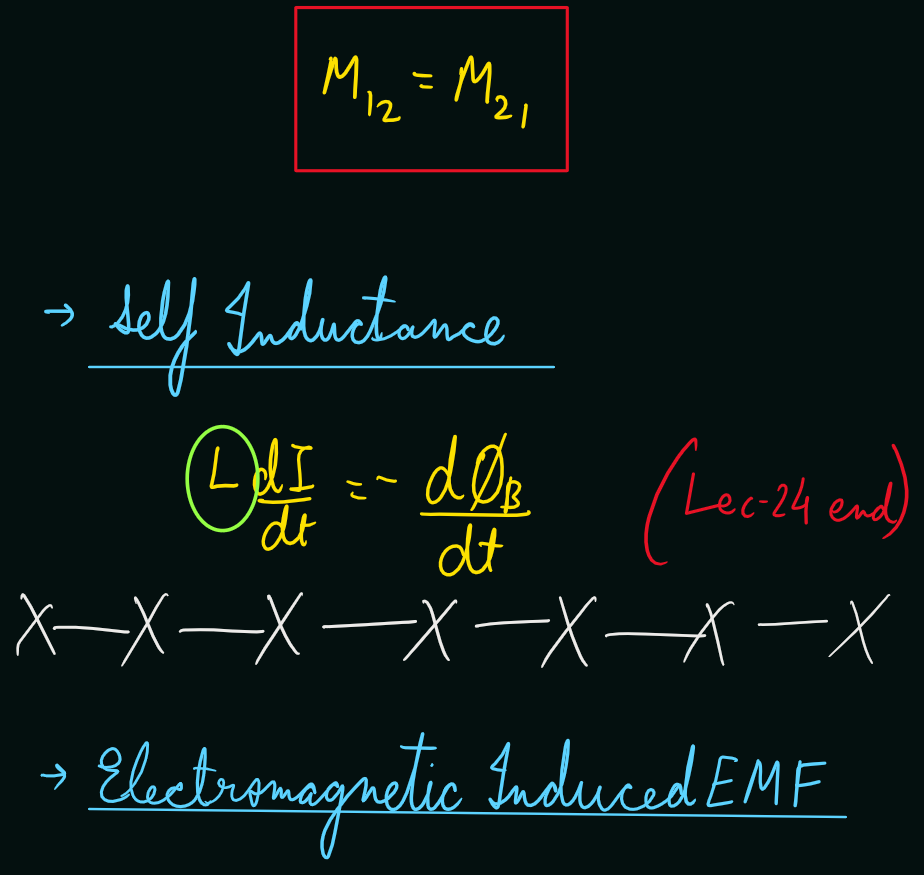 M₁₂ = M₂₁
→ Self Inductance
L dI/dt = - dØ_B/dt (Lec-24 end)
X—X—X—X—X—X—X
→ Electromagnetic Induced EMF